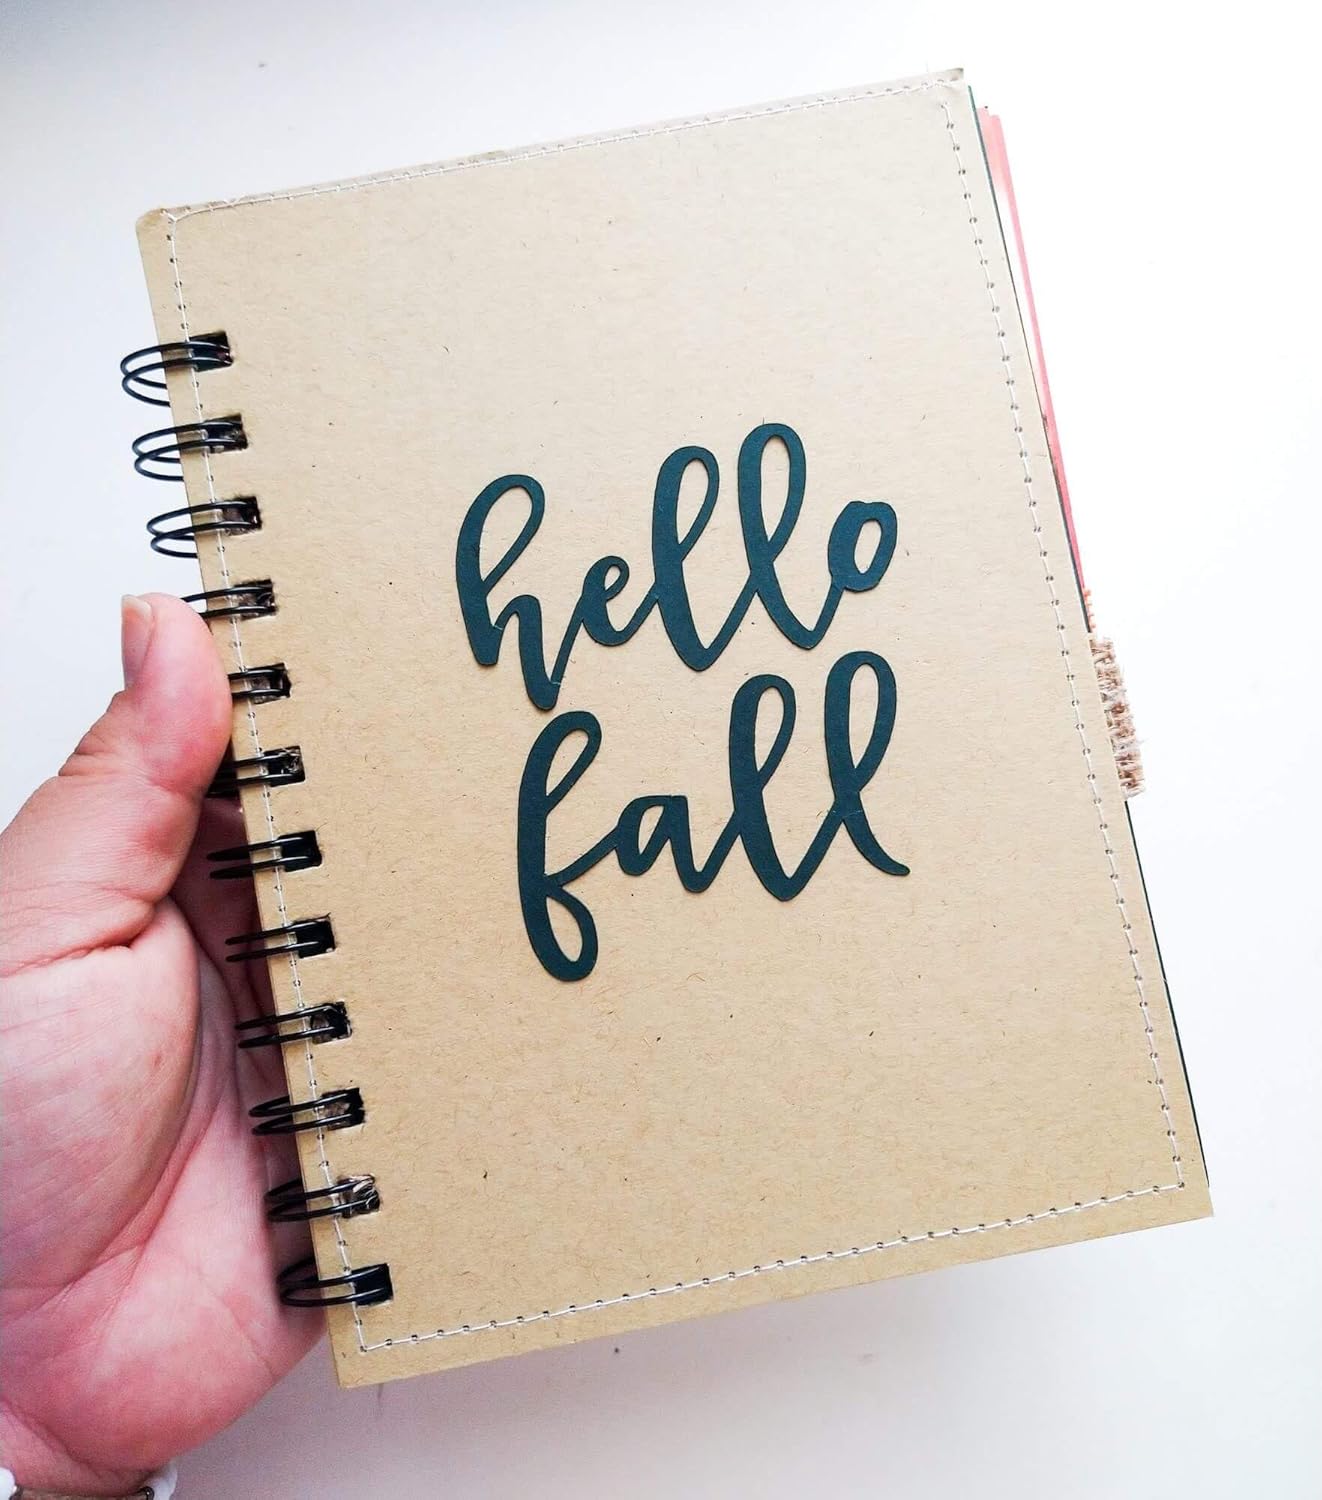 hello
fall